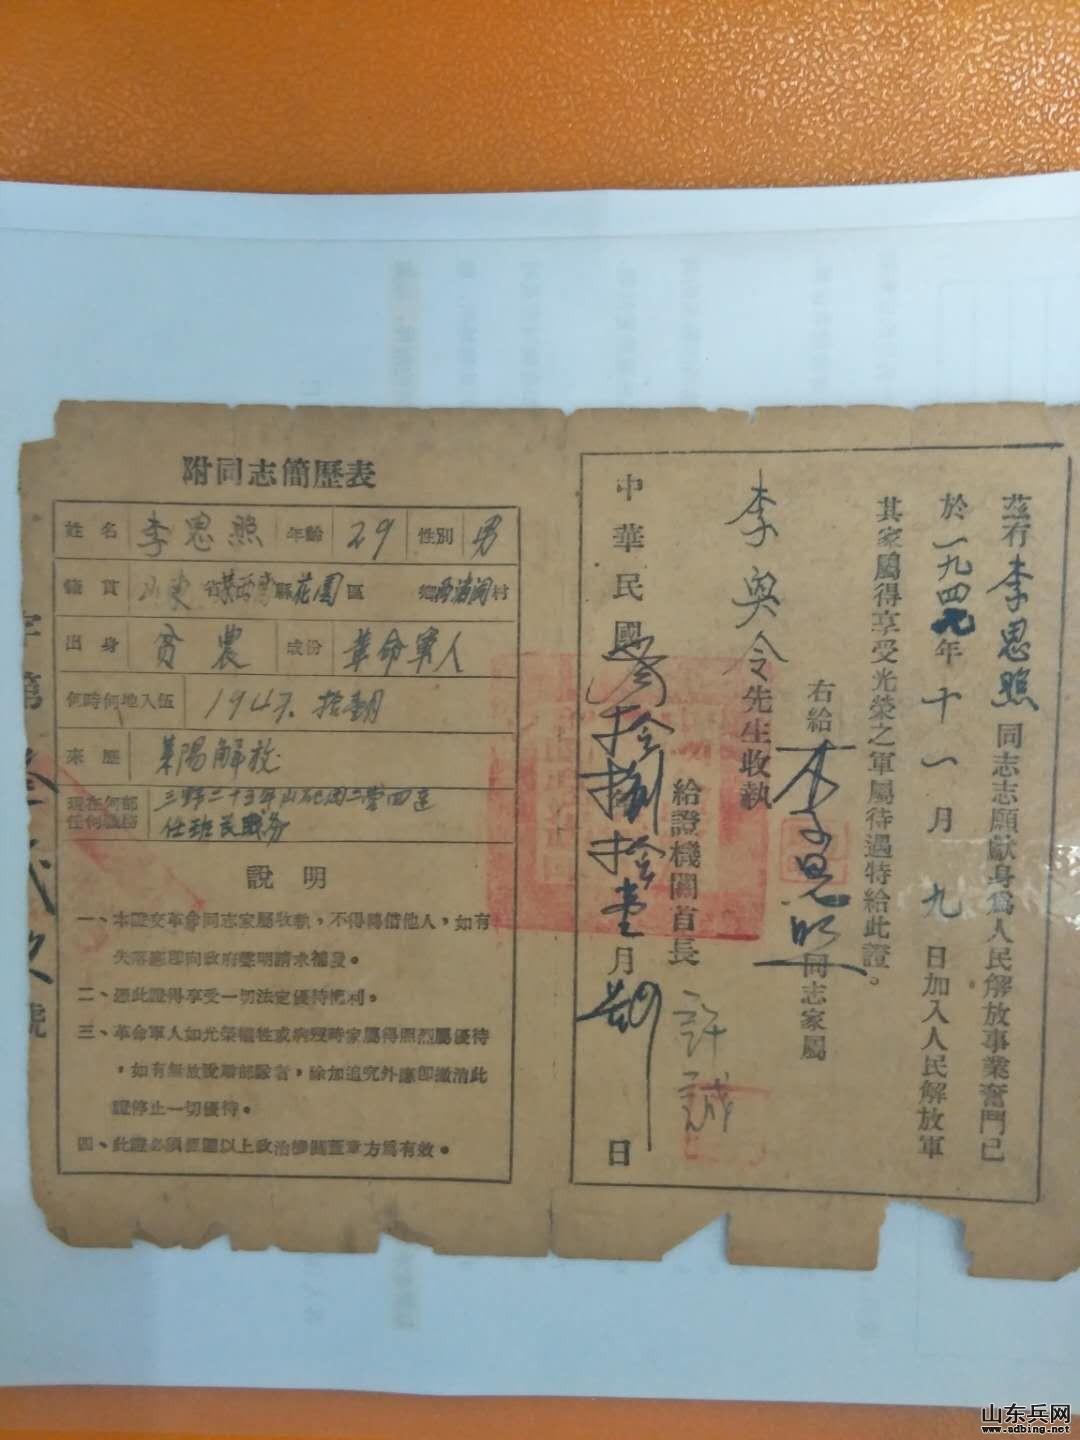 茲有李思照同志志願獻身爲人民解放事業奮鬥已
於一九四年十一月九日加入人民解放軍
其家屬得享受光榮之軍屬待遇特給此證。
右給李思照同志家屬
李奐令先生收執
給證機關首長許誠
中華民國叁拾捌拾壹月日
附同志簡歷表
姓名 李思照 年齡 29 性別 男
籍貫 山東省萊西南縣花園區 鄉村
出身 貧農 成份 革命軍人
何時何地入伍 1947.拾壹月
來歷 萊陽解放
現在何部任何職務 三野二十三军山砲团二营四连
任班長職务
說明
一、本證交革命同志家屬收執，不得轉借他人，如有
失落應即向政府聲明請求補發。
二、憑此證得享受一切法定優待權利。
三、革命軍人如光榮犧牲或病歿時家屬得照烈屬優待
，如有無故脫離部隊者，除加追究外應即繳消此
證停止一切優待。
四、此證必須經團以上政治機關蓋章方爲有效。
字第號
山东兵网
www.sdbing.net